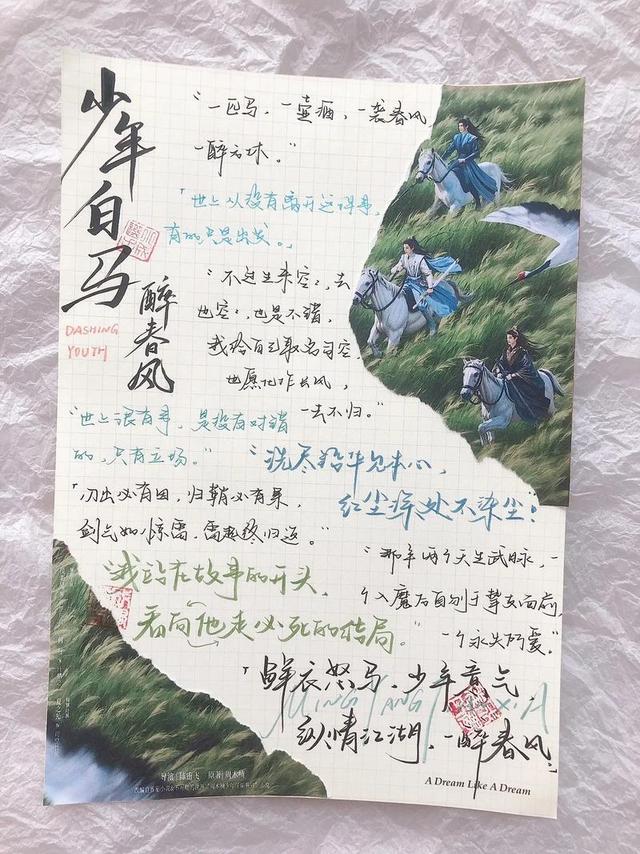 少年白马
醉春风
DASHING
YOUTH
“一匹马，一壶酒，一袭春风
一醉方休。”
「世上从没有离开这件事，
有的只是出发。」
“不过生来空空，去
也空空，也是不错，
我给自己取名司空，
也愿化作长风，
一去不归。”
“世上很有事，是没有对错
的，只有立场。”
“洗尽铅华见本心，
红尘深处不染尘！
「刀出必有因，归鞘必有果，
剑气如惊雷，雷起终归返。”
“我站在故事的开头，
看向他走必死的结局。”
“那年两个天生武脉，一
个入魔后自刎于挚友面前，
一个永失所爱。”
「鲜衣怒马，少年意气，
纵情江湖，一醉春风」
A Dream Like A Dream